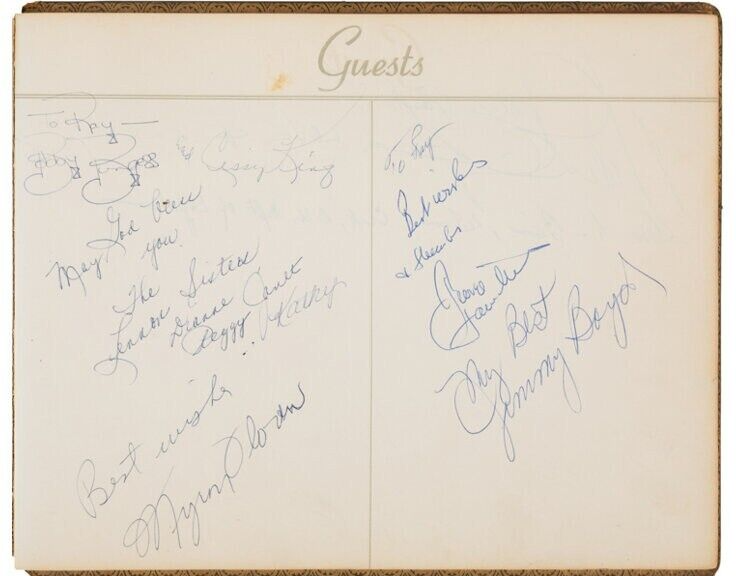 Guests
To Ray—
Bobby Burgess & Cissy King
May God bless
you
The
Lennon Sisters
Dianne Janet
Peggy Kathy
Best wishes
Myron Floren
To Ray
Best wishes
& Thanks
My Best
Jimmy Boyd